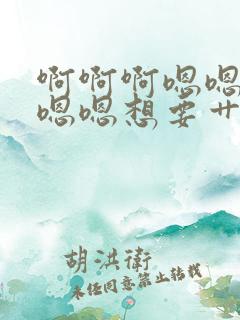 啊啊啊嗯嗯
嗯嗯想要艹
胡洪衛
未经同意禁止转载